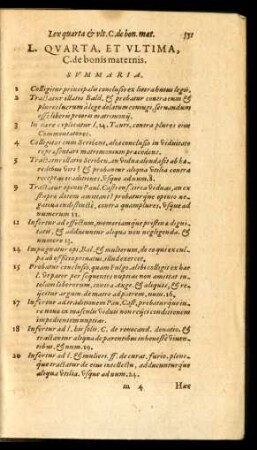 Lex quarta & vlt. C. de bon. mat. 551
L. QVARTA, ET VLTIMA,
C. de bonis maternis.
SVMMARIA.
1 Colligitur principalis conclusio ex litera huius legis.
2 Tractatur illatio Bald. & probatur contra eum &
plures lucrum à lege delatum coniugi, seruandum
esse liberis proprio matrimonij.
3 In care explicatur l. 24. Tauri, contra plures eius
Commentatores.
4 Colligitur cum Scribent. alia conclusio in Viduitate
repræsentari matrimonium præcedens.
5 Tractatur illatio Scribent. an Vidua alenda sit ab hæ-
redibus Viri? & probantur aliqua Vtilia contra
receptas traditiones, Vsque ad num. 8.
9 Tractatur opinio Paul. Castrens. circa Viduam, an ex
stupro dotem amittat? probatur que opinio ne-
gatiua indistinctè, contra quamplures, Vsque ad
numerum 11.
12 Infertur ad effectum, memoriam que præterita digni-
tatis, & adducuntur aliqua non negligenda. &
numero 13.
14 Impugnatur opi. Bal. & multorum, de eo qui ex cul-
pa ab officio priuatus, illud exercet.
15 Probatur conclusio, quam Fulgo. alibi colligit ex hac
l. Vt pater per sequentes nuptias non amittat re-
etalem liberorum, contra Ange. & aliquos, & re-
ijcitur argum. de matre ad patrem, num. 16.
17 Infertur ad traditionem Pau. Cast. probatur que in re-
minu in masculo Viduo non reijci conditionem
impedientem nuptias.
18 Infertur ad l. his solis. C. de reuocand. donatio. &
tractantur aliqua de parentibus in honestè Viuen-
tibus. & num. 19.
20 Infertur ad l. & mulieri. ff. de curat. furio. plene-
que tractatur de eius intellectu, adducuntur que
aliqua Vtilia. Vsque ad num. 24.
m 4 Hæc